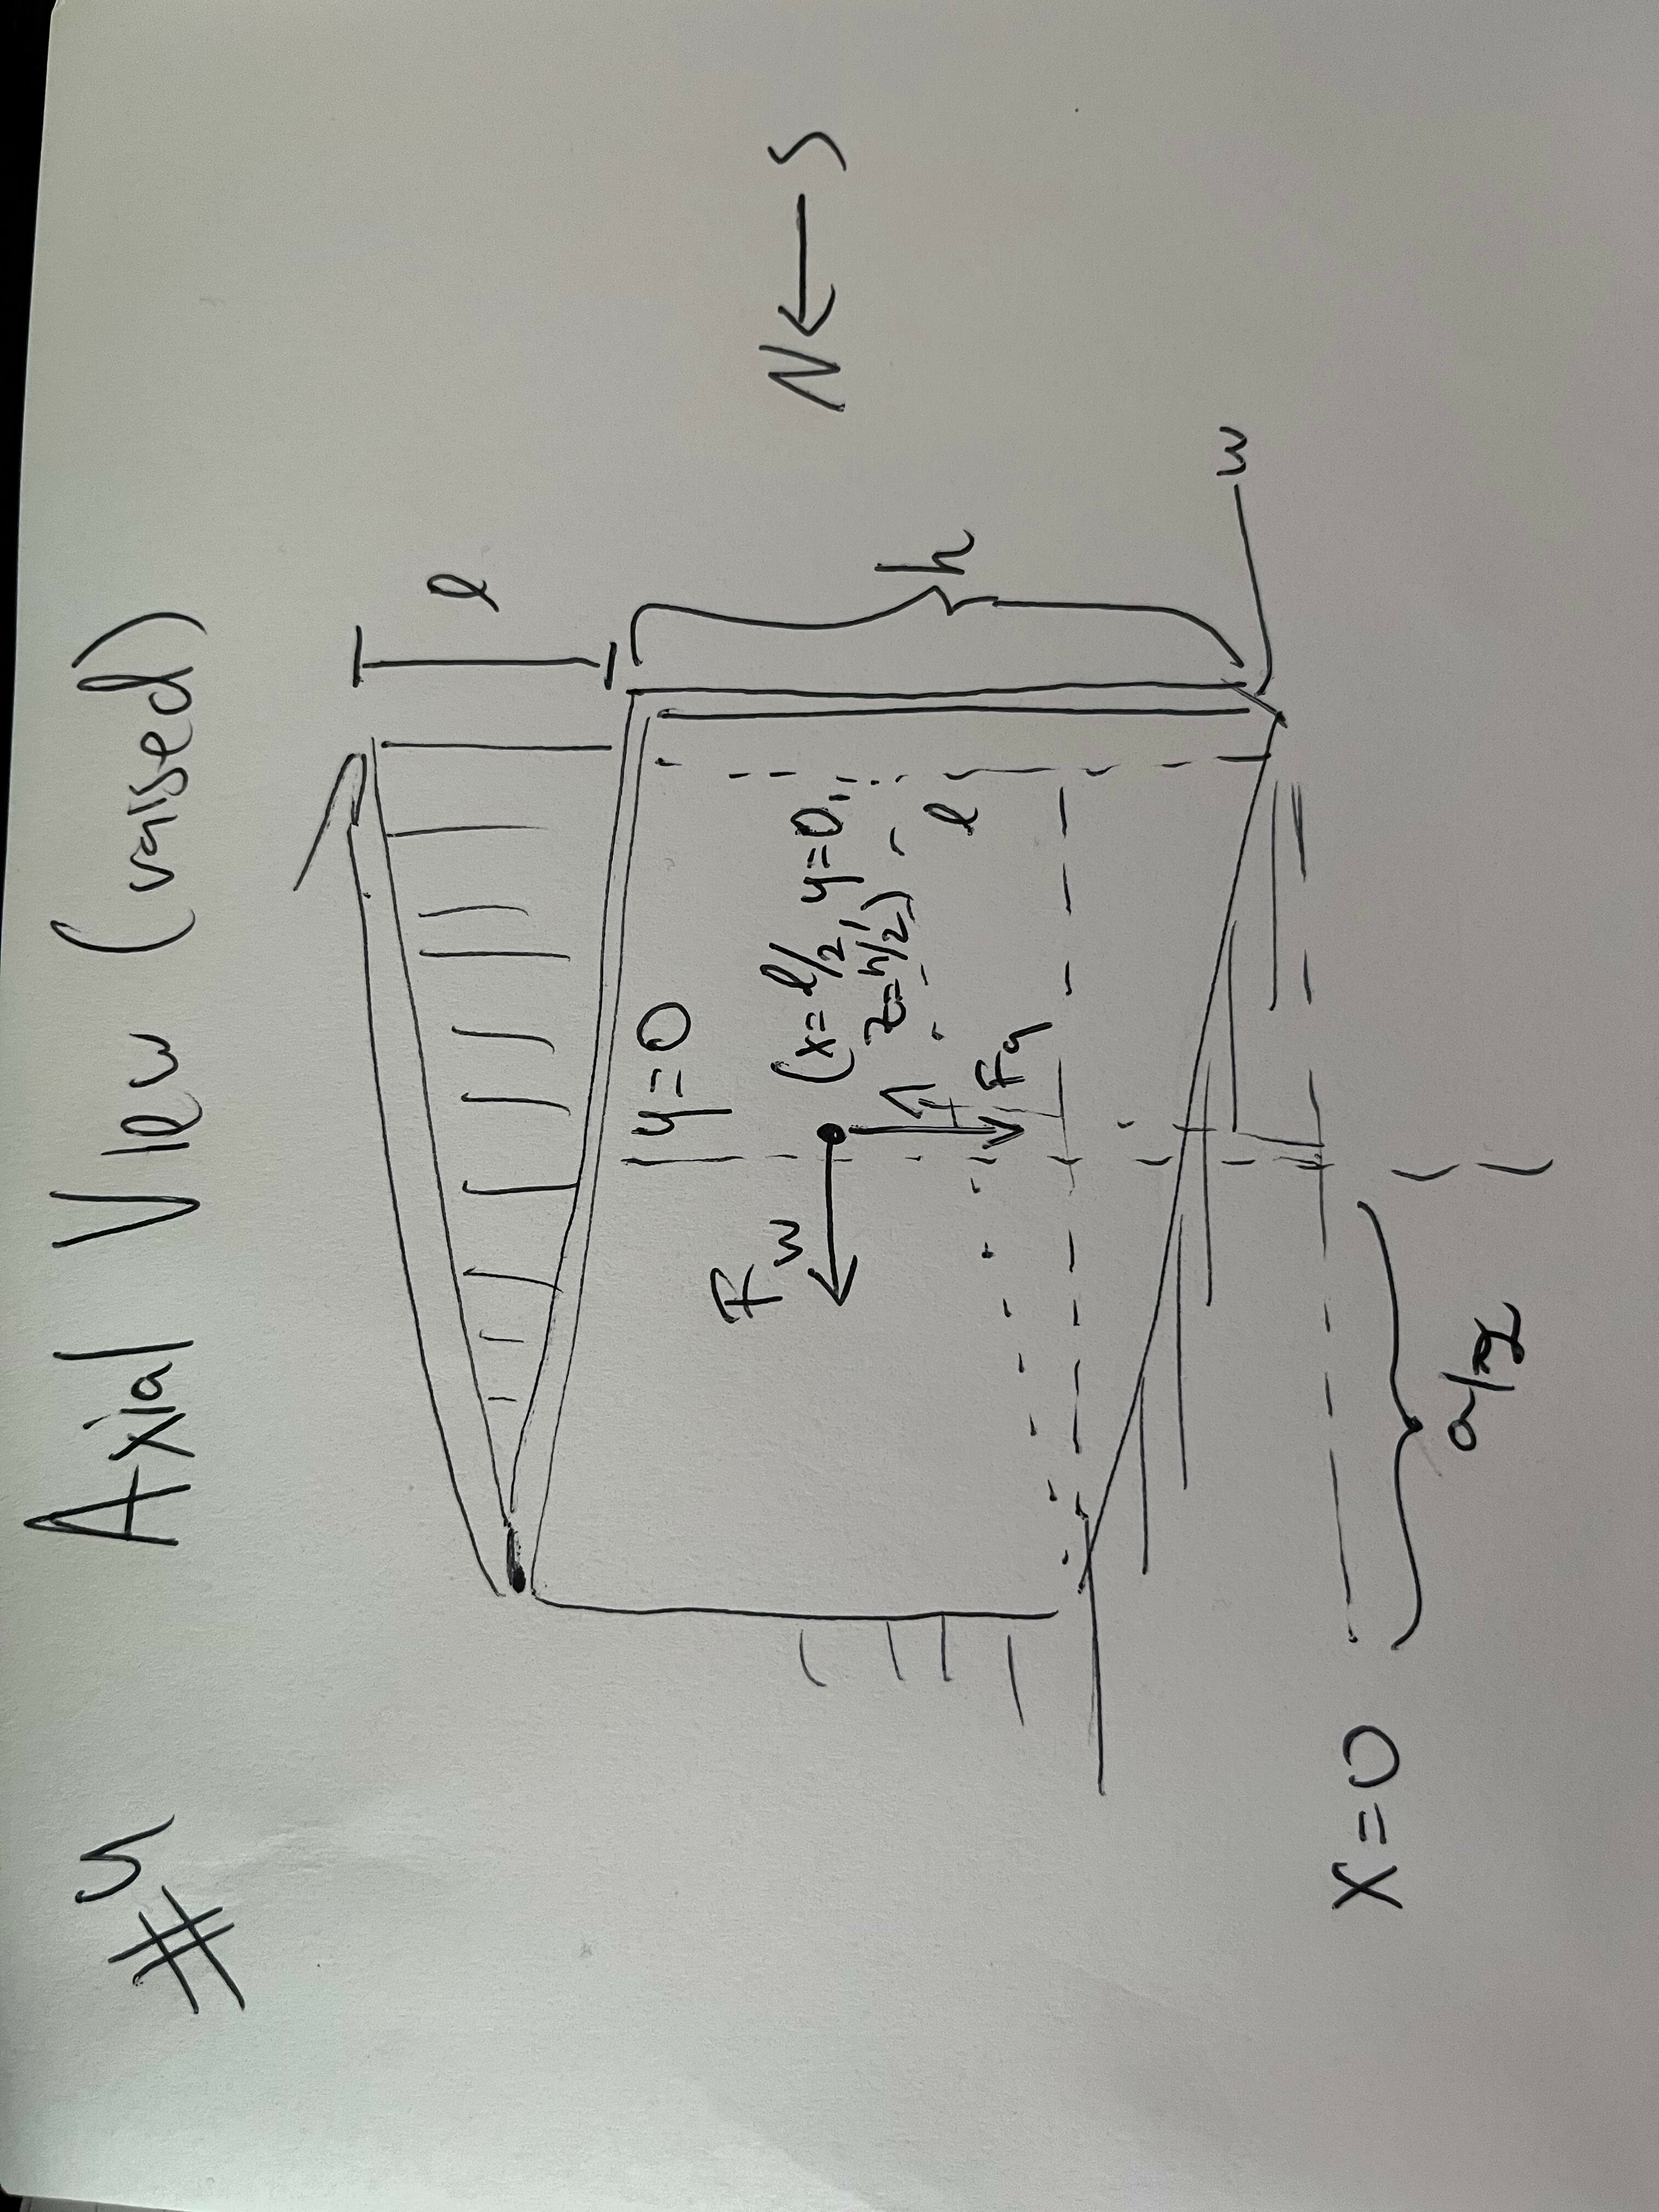 #4 Axial View (raised)
l
y=0
F_w
(x=l/2, y=0,
z=h/2)
N ← S
l
h
F_g
w
X=0
a/2